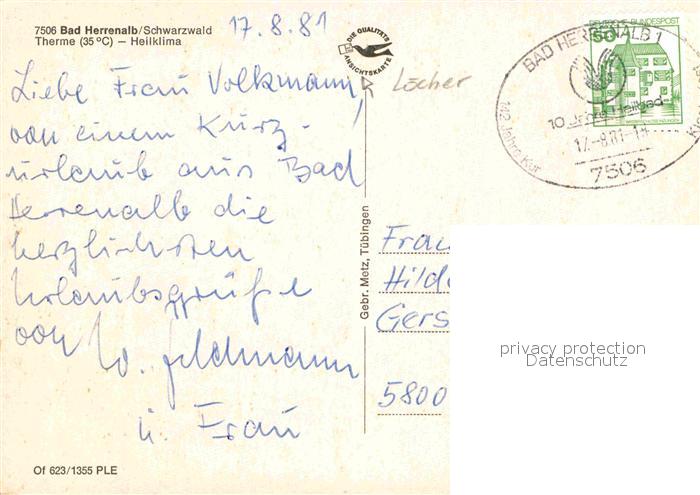 7506 Bad Herrenalb/Schwarzwald
Therme (35 °C) — Heilklima
17.8.81
DIE QUALITÄTS
ANSICHTSKARTE
Löcher
Liebe Frau Volkmann,
von einem Kurz-
urlaub aus Bad
Herrenalb die
herzlichsten
Urlaubsgrüße
von W. Feldmann
u. Frau
Of 623/1355 PLE
Gebr. Metz, Tübingen
DEUTSCHE BUNDESPOST
50
BAD HERRENALB 1
10 Jahre Heilbad
142 Jahre Kur
17.-8.81-14
7506
Frau
Hilde
Gers
5800
privacy protection
Datenschutz